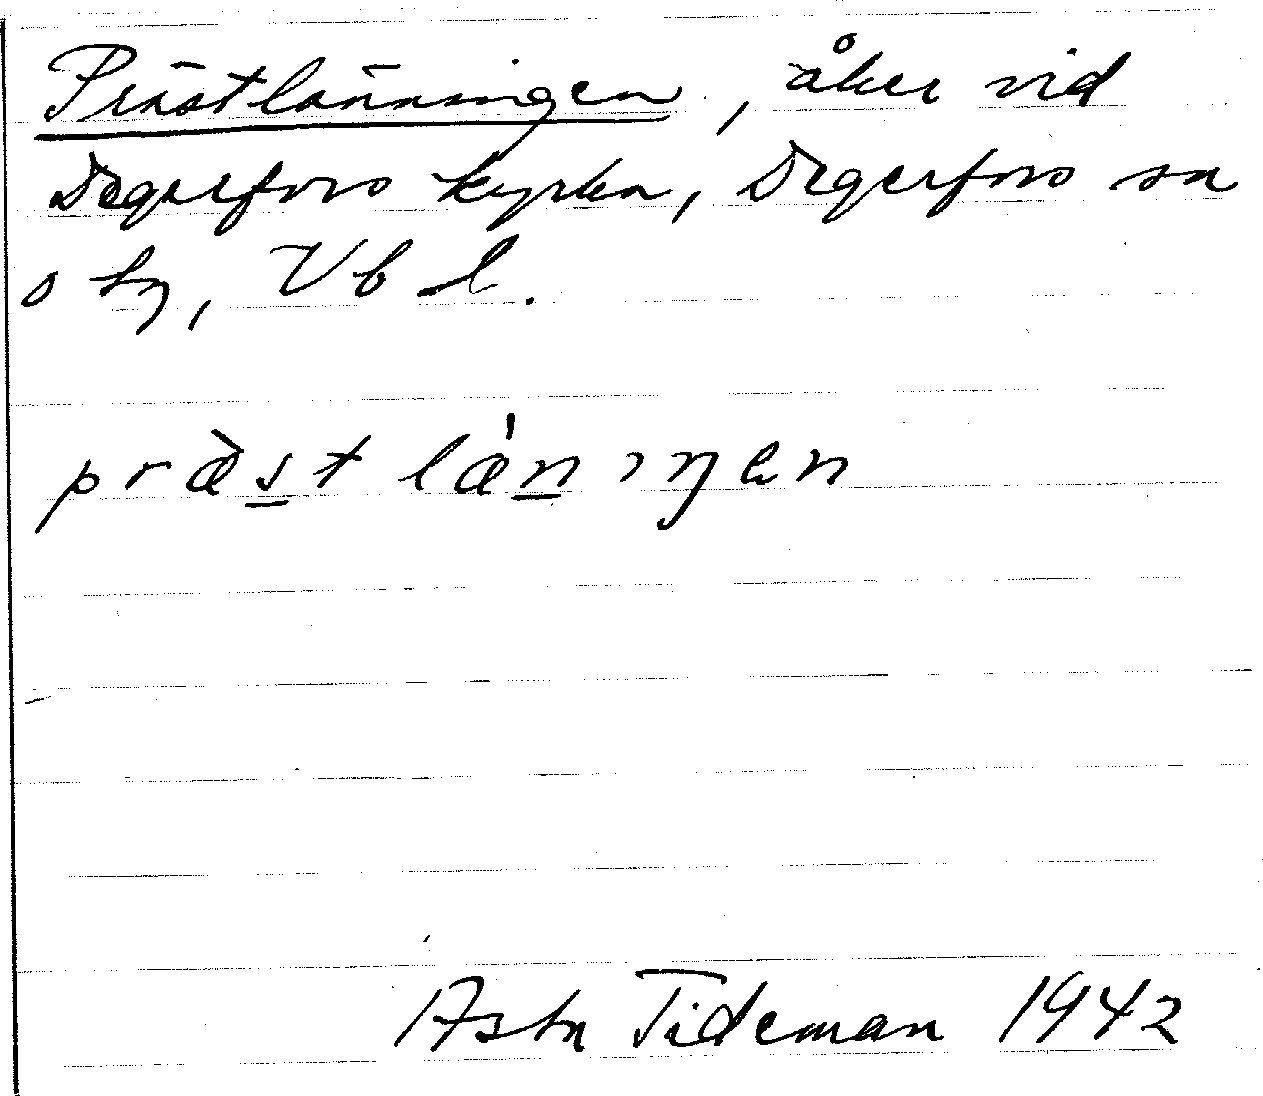 Prästlänningen, åker vid
Degerfors kyrka, Degerfors sn
o hg, Vb l.
præ̀st læ̀nıŋen
Asta Tideman 1942